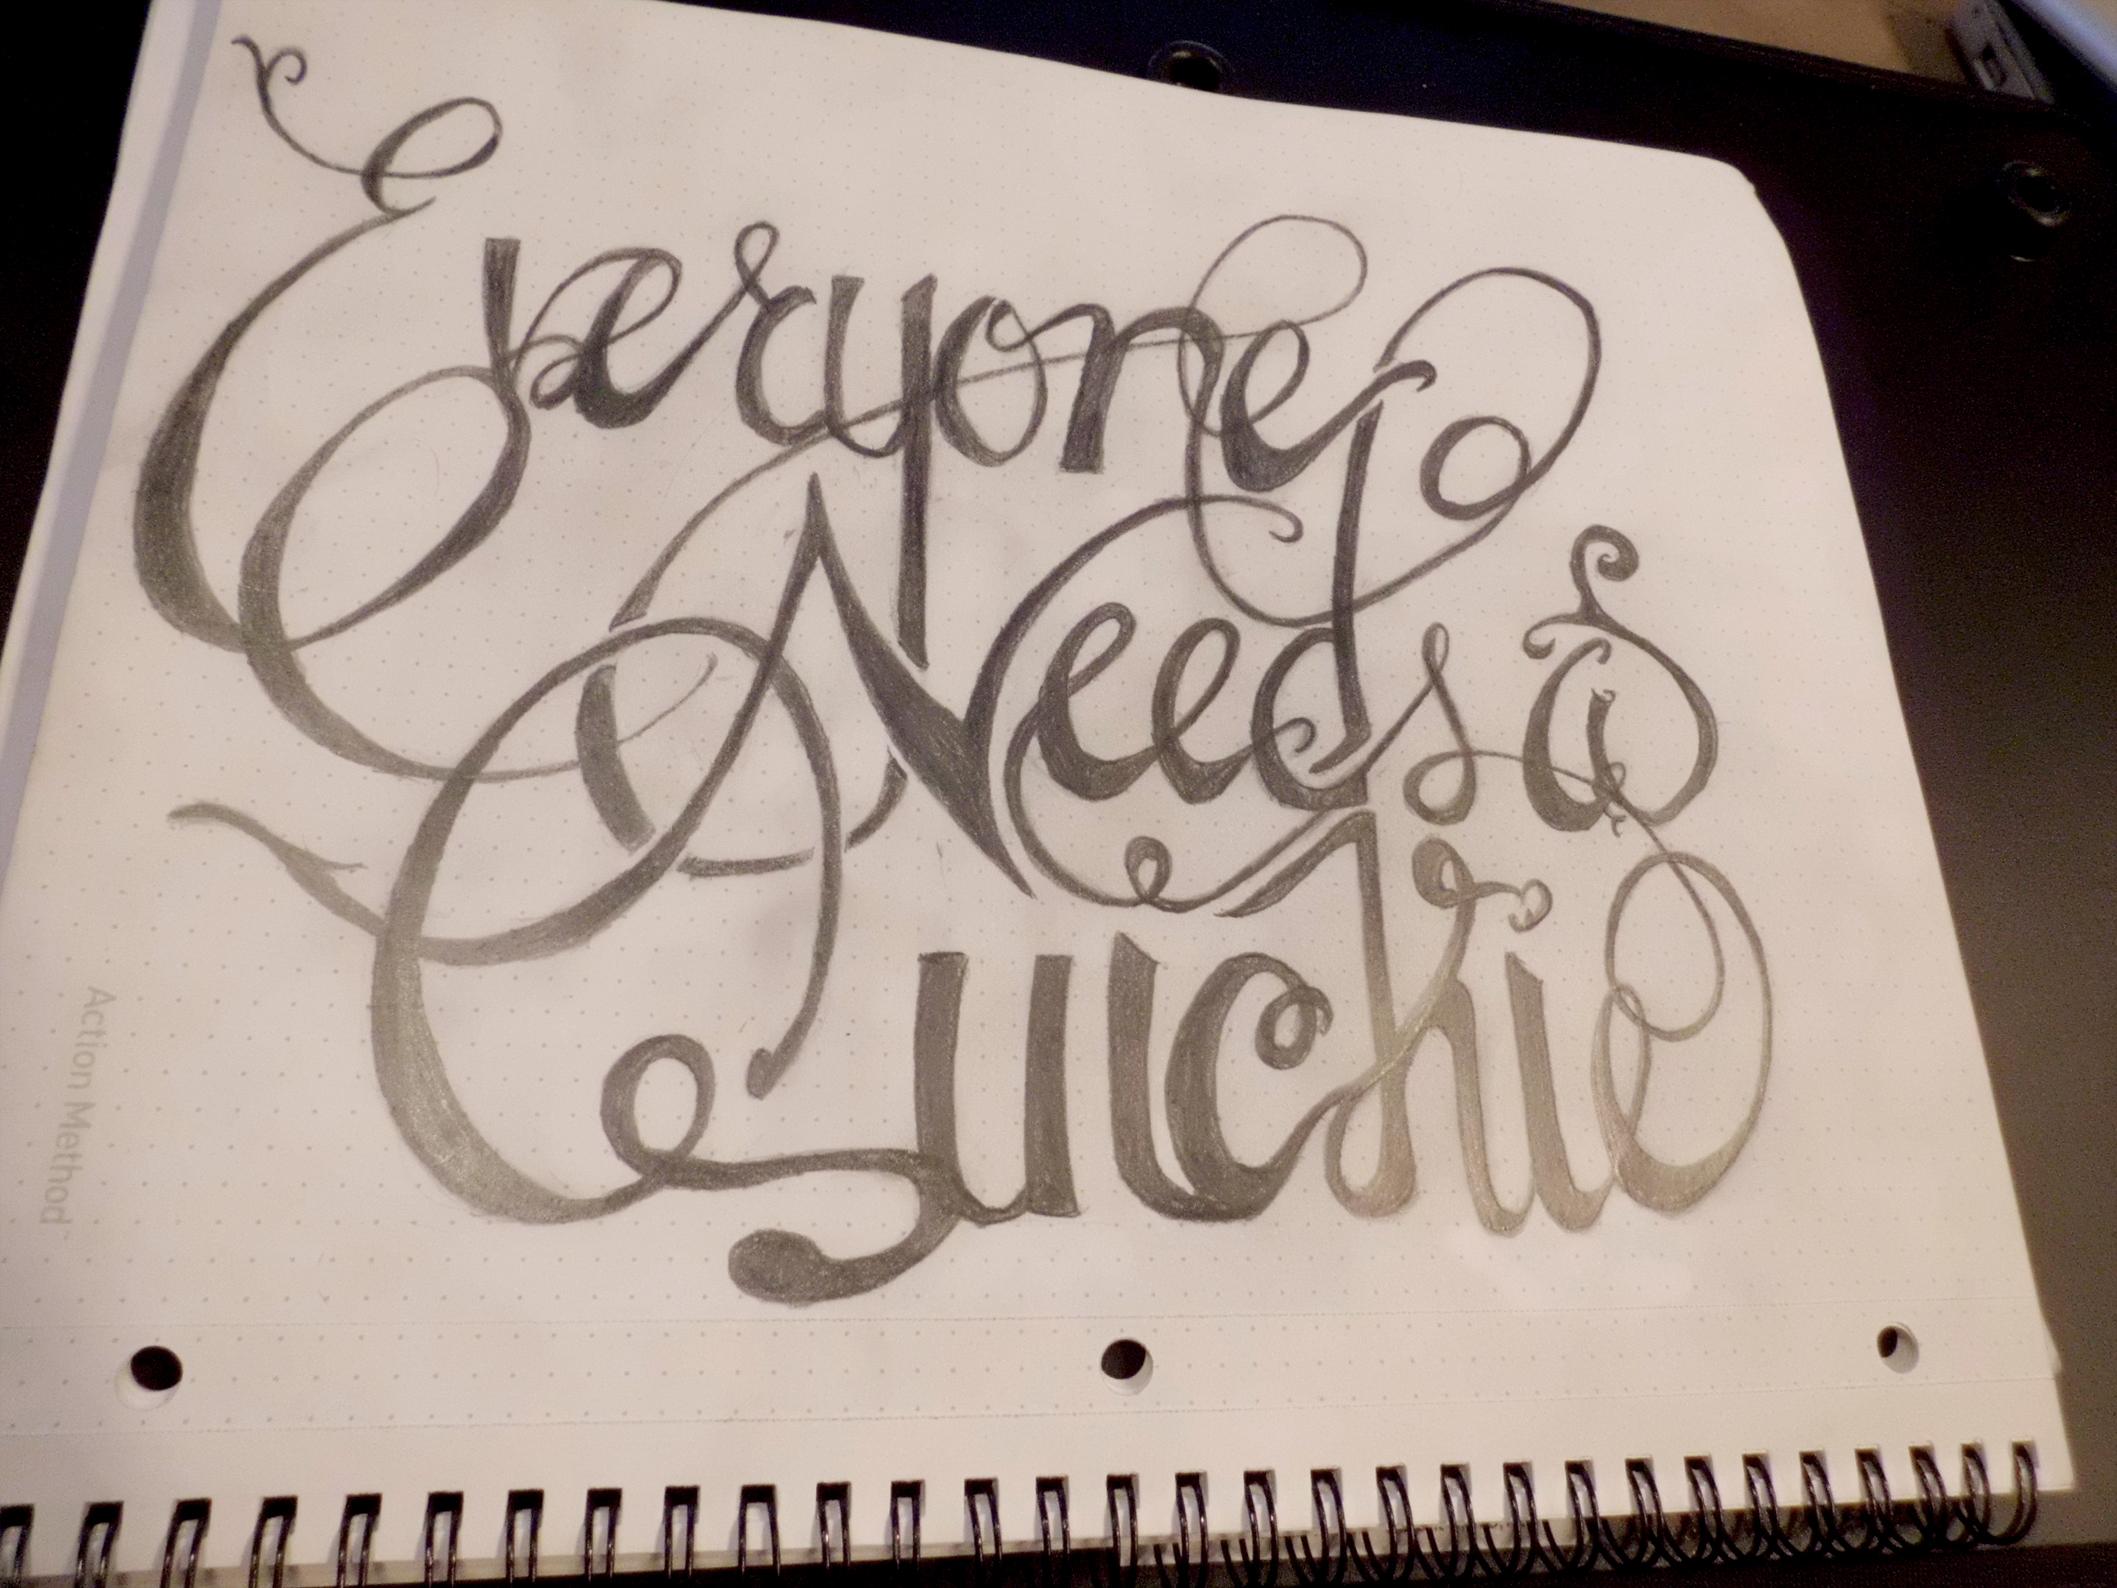 Everyone
Needs a
Quickie
Action Method